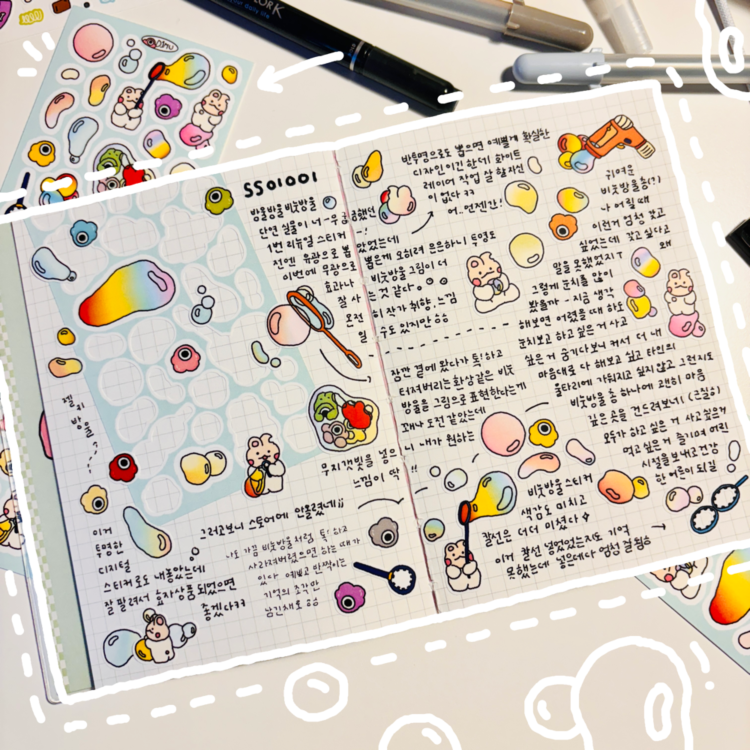 WORK
SS01001
방울방울 비눗방울
단연 실물이 너-무 궁금했던
1번 리뉴얼 스티커!
전엔 유광으로 뽑았었는데
이번에 무광으로 뽑은게 오히려 은은하니 투명도
효과나 비눗방울 그림이 더
잘 사는 것 같다
온전히 작가 취향, 느낌
일 수도 있지만 ㅎㅎ
젤리
방울
잠깐 곁에 왔다가 톡! 하고
터져버리는 환상같은 비눗
방울을 그림으로 표현한다는게
꽤나 도전 같았는데
내가 원하는
무지개빛을 넣으니
느낌이 딱!!
이거
투명한
디지털
스티커로도 내놓았는데
잘 팔려서 효자상품 되었으면
좋겠다ㅋㅋ
그러고보니 스토어에 안올렸네;;
나도 가끔 비눗방울처럼 톡! 하고
사라져버렸으면 하는 때가
있다 예쁘고 반짝이는
기억의 조각만
남긴채로 ㅎㅎ
반투명으로도 뽑으면 예쁠게 확실한
디자인이긴 한데 화이트
레이어 작업 잘 할 자신
이 없다ㅋㅋ
어..언젠간!
귀여운
비눗방울총(!)
나 어릴 때
이런거 엄청 갖고
싶었는데 갖고싶다고
말을 못했었지ㅜ 왜
그렇게 눈치를 많이
봤을까- 지금 생각
해보면 어렸을 때 하도
눈치보고 하고 싶은 거 사고
싶은 거 숨기다보니 커서 더 내
마음대로 다 해보고 싶고 타인의
울타리에 가둬지고 싶지 않고 그런지도
비눗방울 총 하나에 괜히 마음
깊은 곳을 건드려보네
모두가 하고 싶은 거 사고 싶은 거
먹고 싶은 거 즐기며 어린
시절을 보내고 건강
한 어른이 되길
비눗방울 스티커
색감도 미치고
칼선은 더더 미쳤다
이거 칼선 넣었었는지도 기억
못했는데 넣은데다 엄청 잘 됨